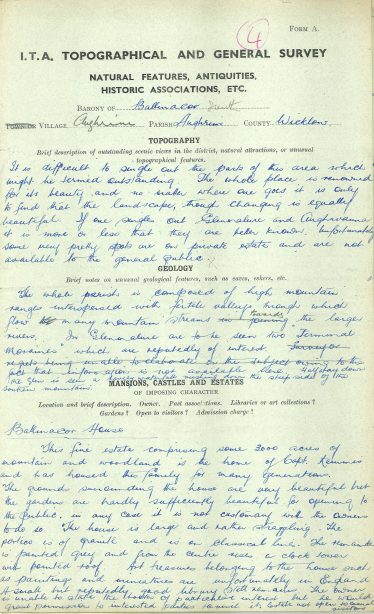 4
FORM A.
I.T.A. TOPOGRAPHICAL AND GENERAL SURVEY
NATURAL FEATURES, ANTIQUITIES,
HISTORIC ASSOCIATIONS, ETC.
BARONY OF Ballinacor
TOWN OR VILLAGE Aughrim PARISH Aughrim COUNTY Wicklow
TOPOGRAPHY
Brief description of outstanding scenic views in the district, natural attractions, or unusual
topographical features.
It is difficult to single out the parts of this area which
might be termed outstanding. The whole place is renowned
for its beauty and no matter where one goes it is only
to find that the landscape, though changing is equally
beautiful. If one singles out Glenmalure and Aughavanna
it is more or less that they are better known. Unfortunately
some very pretty spots are on private estate and are not
available to the general public.
GEOLOGY
Brief notes on unusual geological features, such as caves, eskers, etc.
The whole parish is composed of high mountain
ranges interspersed with fertile valleys through which
flow many mountain streams towards the larger
rivers. In Glenmalure are to be seen two Terminal
Moraines which are repeatedly of interest
fact that information is not available here. Half way down
the Glen is seen a down the steep side of the
mountain
MANSIONS, CASTLES AND ESTATES
OF IMPOSING CHARACTER
Location and brief description. Owner. Past associations. Libraries or art collections?
Gardens? Open to visitors? Admission charge?
Ballinacor House
This fine estate comprising some 3000 acres of
mountain and woodland is the home of Capt. Kemmis
and has housed this family for many generations.
The grounds surrounding the house are very beautiful but
the gardens are hardly sufficiently beautiful for opening to
the public, in any case it is not customary with the owners
to do so. The house is large and rather straggling. The
portico is of granite and is on classical line. The
is painted grey and from the centre rises a clock tower
with pointed roof. Art treasures belonging to the house such
as paintings and miniatures are unfortunately in England
A small but repeatedly good library still remains. The owner
unable to state the books of particular interest but would
grant permission to interested parties